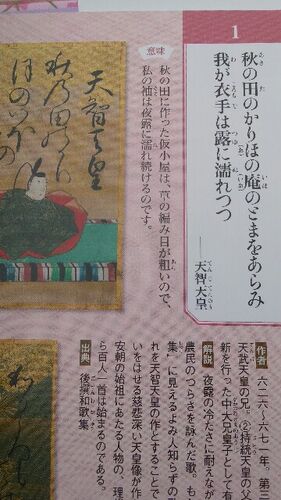 1
秋の田のかりほの庵のとまをあらみ
我が衣手は露に濡れつつ
天智天皇
意味
秋の田に作った仮小屋は、草の編み目が粗いので、
私の袖は夜露に濡れ続けるのです。
天智天皇
作者
六二六〜六七一年。第三
天武天皇の兄。②持統天皇の父
新を行った中大兄皇子として
解説
夜露の冷たさに耐えなが
農民のつらさを詠んだ歌。も
集』に見えるよみ人知らずの
れを天智天皇の作とすることで
いをはせる慈悲深い天皇像が作
安朝の始祖にあたる人物の、理
ら百人一首は始まるのである。
出典
後撰和歌集